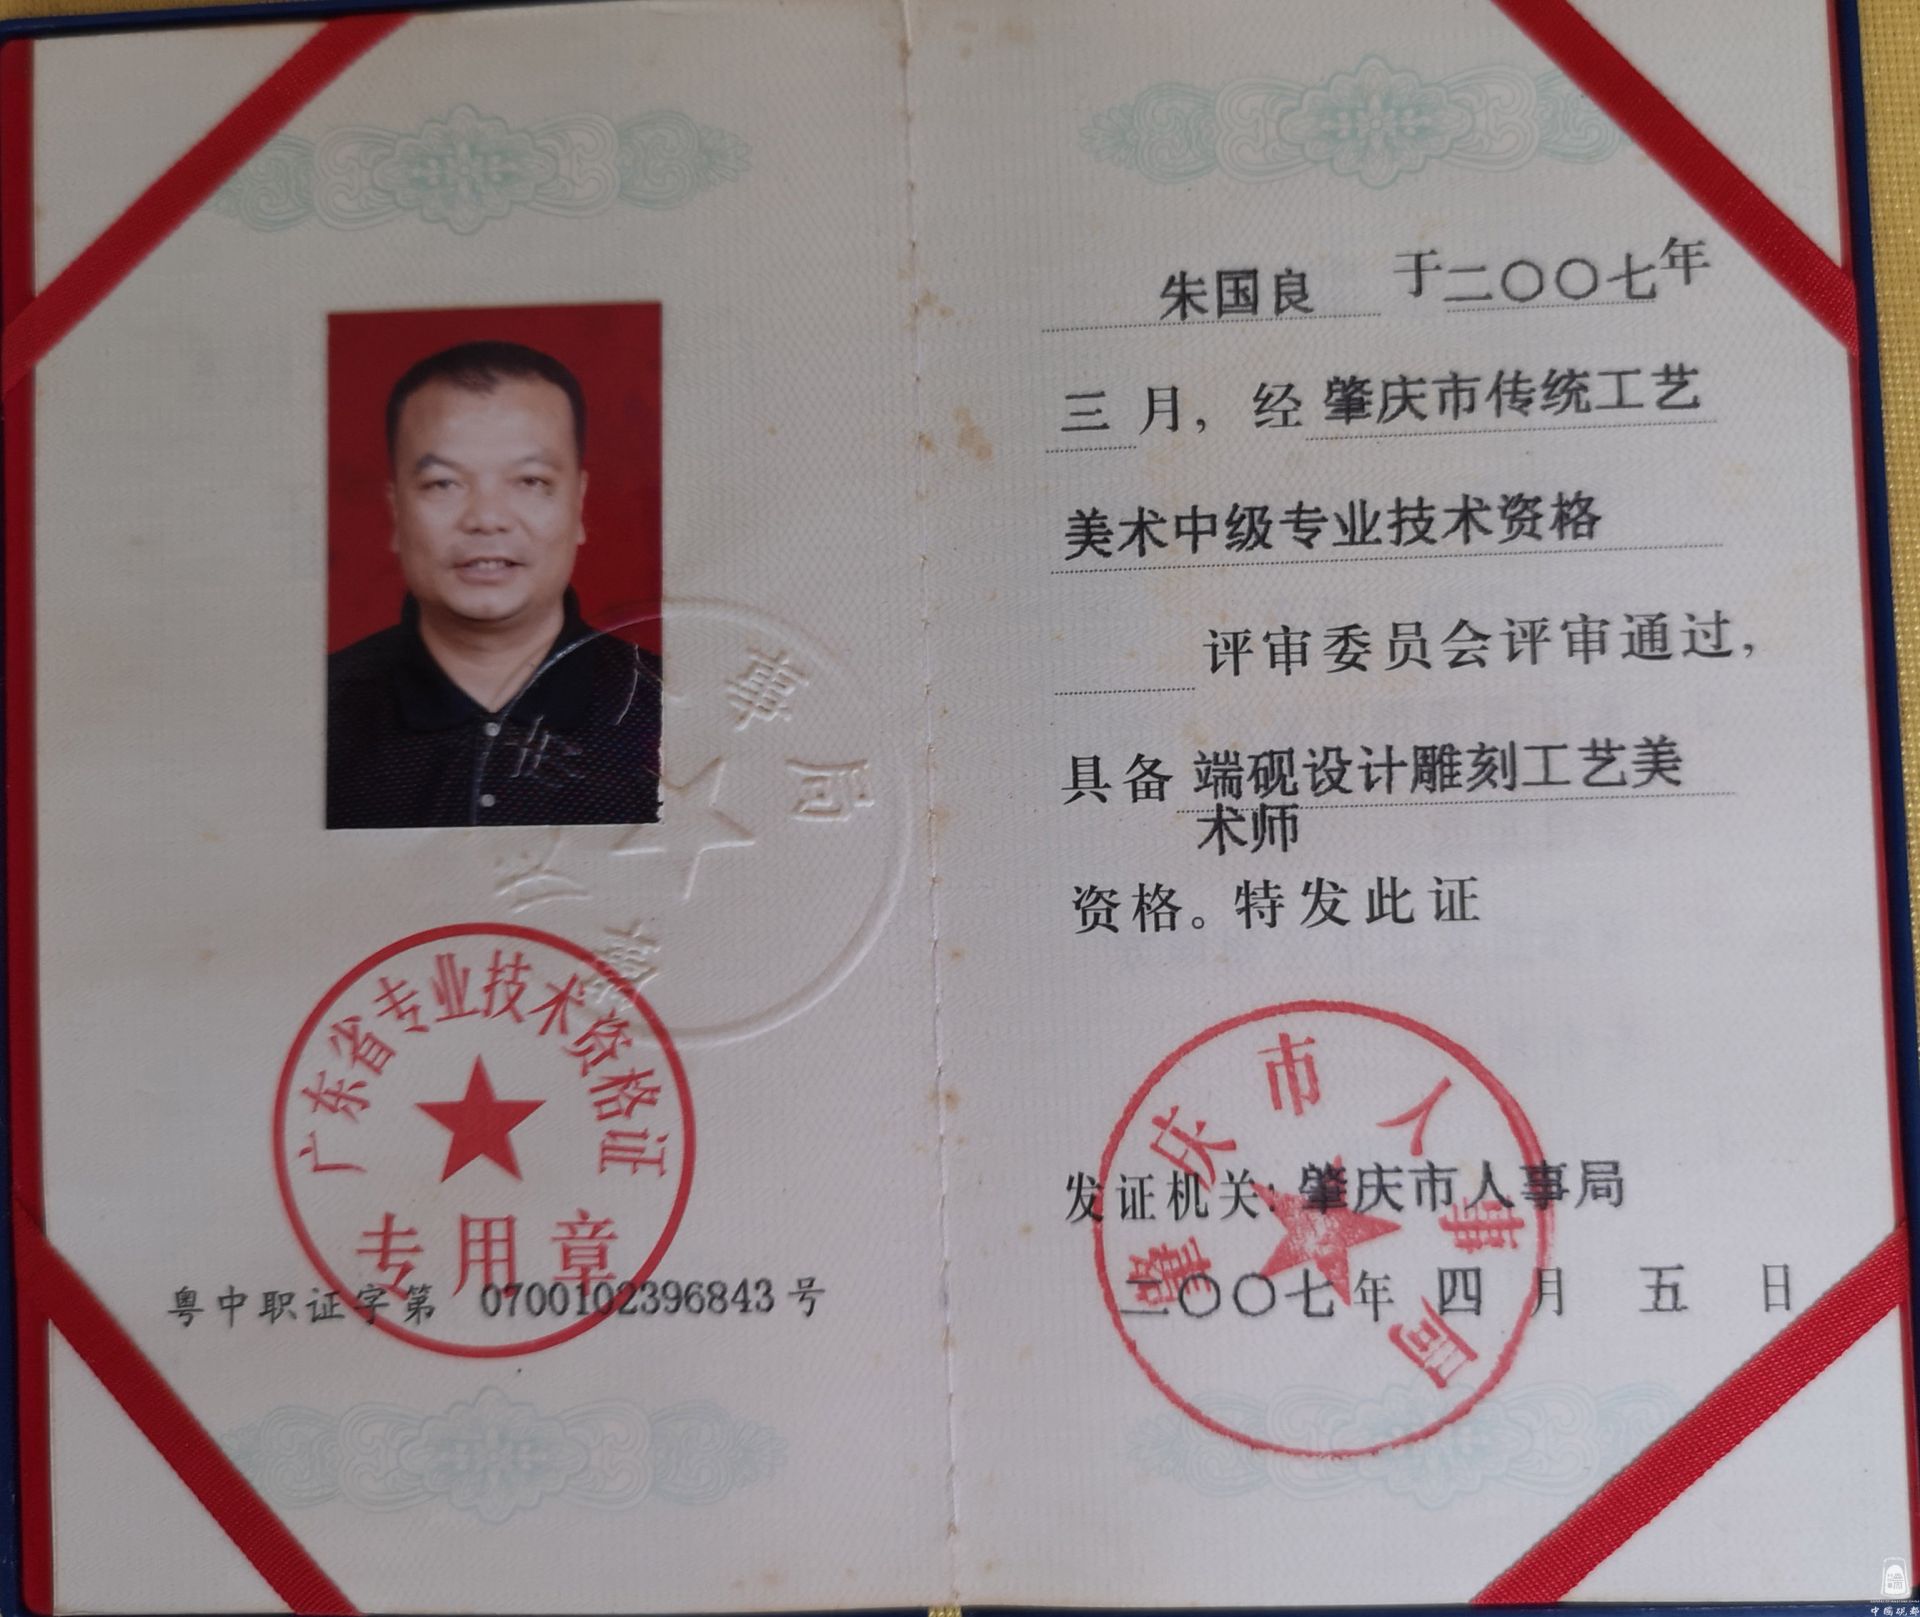 广东省专业技术资格证
专用章
粤中职证字第 0700102396843 号
朱国良 于二〇〇七年
三月，经肇庆市传统工艺
美术中级专业技术资格
评审委员会评审通过，
具备 端砚设计雕刻工艺美
术师
资格。特发此证
肇庆市人事局
发证机关：肇庆市人事局
二〇〇七年 四 月 五 日
中国砚都